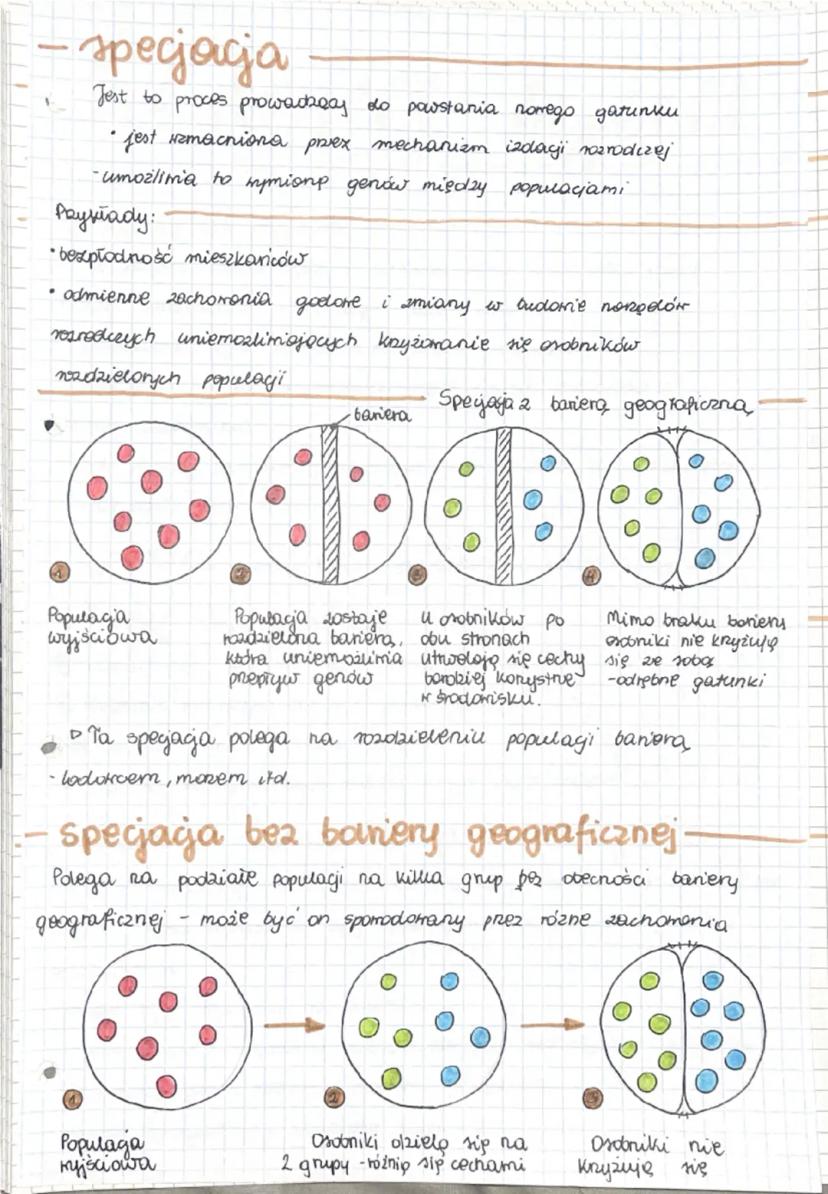 - specjacja
Jest to proces prowadzący do powstania nowego gatunku
• jest wzmacniana przez mechanizm izolacji rozrodczej
-umożliwia to wymianę genów między populacjami
Przykłady:
• bezpłodność mieszkańców
• odmienne zachowania godowe i zmiany w budowie narządów
rozrodczych uniemożliwiających krzyżowanie się osobników
rozdzielonych populacji
Specjacja z barierą geograficzną
bariera
1
2
3
4
Populacja
wyjściowa
Populacja zostaje
rozdzielona barierą,
która uniemożliwia
przepływ genów
U osobników po
obu stronach
utrwalają się cechy
bardziej korzystne
w środowisku.
Mimo braku bariery
osobniki nie krzyżują
się ze sobą
-odrębne gatunki
▷ Ta specjacja polega na rozdzieleniu populacji barierą
- lodowcem, morzem itd.
- specjacja bez bariery geograficznej -
Polega na podziale populacji na kilka grup bez obecności bariery
geograficznej - może być on spowodowany przez różne zachowania
1
2
3
Populacja
wyjściowa
Osobniki dzielą się na
2 grupy -różnią się cechami
Osobniki nie
krzyżują się